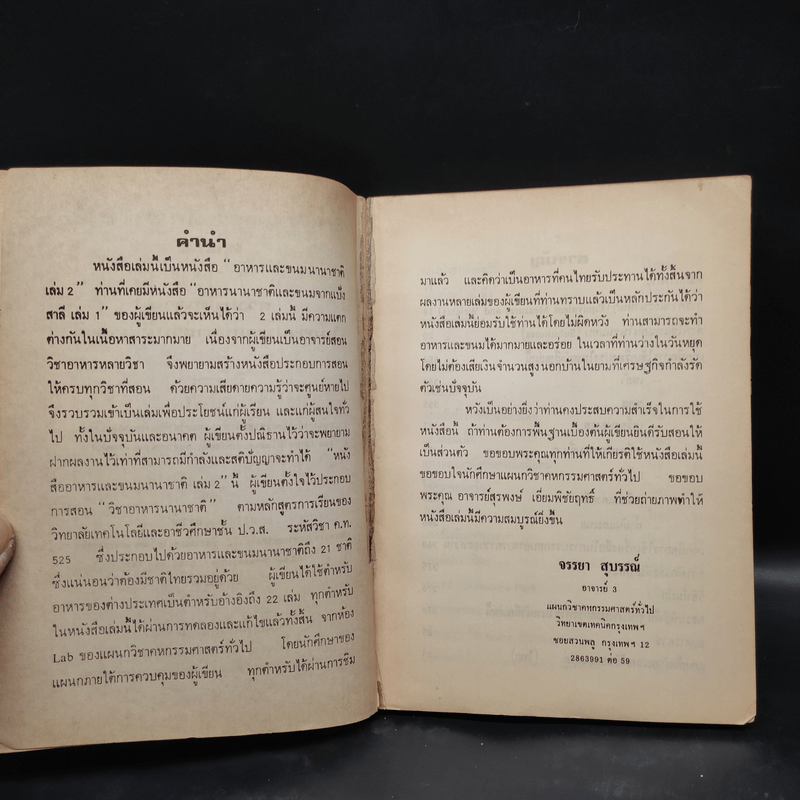 คำนำ
หนังสือเล่มนี้เป็นหนังสือ "อาหารและขนมนานาชาติ
เล่ม 2" ท่านที่เคยมีหนังสือ "อาหารนานาชาติและขนมจากแป้ง
สาลี เล่ม 1" ของผู้เขียนแล้วจะเห็นได้ว่า 2 เล่มนี้ มีความแตก
ต่างกันในเนื้อหาสาระมากมาย เนื่องจากผู้เขียนเป็นอาจารย์สอน
วิชาอาหารหลายวิชา จึงพยายามสร้างหนังสือประกอบการสอน
ให้ครบทุกวิชาที่สอน ด้วยความเสียดายความรู้ว่าจะศูนย์หายไป
จึงรวบรวมเข้าเป็นเล่มเพื่อประโยชน์แก่ผู้เรียน และแก่ผู้สนใจทั่ว
ไป ทั้งในปัจจุบันและอนาคต ผู้เขียนตั้งปณิธานไว้ว่าจะพยายาม
ฝากผลงานไว้เท่าที่สามารถมีกำลังและสติปัญญาจะทำได้ "หนัง
สืออาหารและขนมนานาชาติ เล่ม 2" นี้ ผู้เขียนตั้งใจไว้ประกอบ
การสอน "วิชาอาหารนานาชาติ" ตามหลักสูตรการเรียนของ
วิทยาลัยเทคโนโลยีและอาชีวศึกษาชั้น ป.ว.ส. รหัสวิชา ค.ท.
525 ซึ่งประกอบไปด้วยอาหารและขนมนานาชาติถึง 21 ชาติ
ซึ่งแน่นอนว่าต้องมีชาติไทยรวมอยู่ด้วย ผู้เขียนได้ใช้ตำหรับ
อาหารของต่างประเทศเป็นตำหรับอ้างอิงถึง 22 เล่ม ทุกตำหรับ
ในหนังสือเล่มนี้ได้ผ่านการทดลองและแก้ไขแล้วทั้งสิ้น จากห้อง
Lab ของแผนกวิชาคหกรรมศาสตร์ทั่วไป โดยนักศึกษาของ
แผนกภายใต้การควบคุมของผู้เขียน ทุกตำหรับได้ผ่านการชิม
มาแล้ว และคิดว่าเป็นอาหารที่คนไทยรับประทานได้ทั้งสิ้นจาก
ผลงานหลายเล่มของผู้เขียนที่ท่านทราบแล้วเป็นหลักประกันได้ว่า
หนังสือเล่มนี้ย่อมรับใช้ท่านได้โดยไม่ผิดหวัง ท่านสามารถจะทำ
อาหารและขนมได้มากมายและอร่อย ในเวลาที่ท่านว่างในวันหยุด
โดยไม่ต้องเสียเงินจำนวนสูงนอกบ้านในยามที่เศรษฐกิจกำลังรัด
ตัวเช่นปัจจุบัน
หวังเป็นอย่างยิ่งว่าท่านคงประสบความสำเร็จในการใช้
หนังสือนี้ ถ้าท่านต้องการพื้นฐานเบื้องต้นผู้เขียนยินดีรับสอนให้
เป็นส่วนตัว ขอขอบพระคุณทุกท่านที่ให้เกียรติใช้หนังสือเล่มนี้
ขอขอบใจนักศึกษาแผนกวิชาคหกรรมศาสตร์ทั่วไป ขอขอบ
พระคุณ อาจารย์สุรพงษ์ เอี่ยมพิชัยฤทธิ์ ที่ช่วยถ่ายภาพทำให้
หนังสือเล่มนี้มีความสมบูรณ์ยิ่งขึ้น
จรรยา สุบรรณ์
อาจารย์ 3
แผนกวิชาคหกรรมศาสตร์ทั่วไป
วิทยาเขตเทคนิคกรุงเทพฯ
ซอยสวนพลู กรุงเทพฯ 12
2863991 ต่อ 59